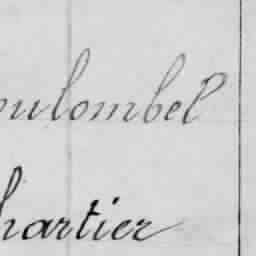 oulombel
hartier